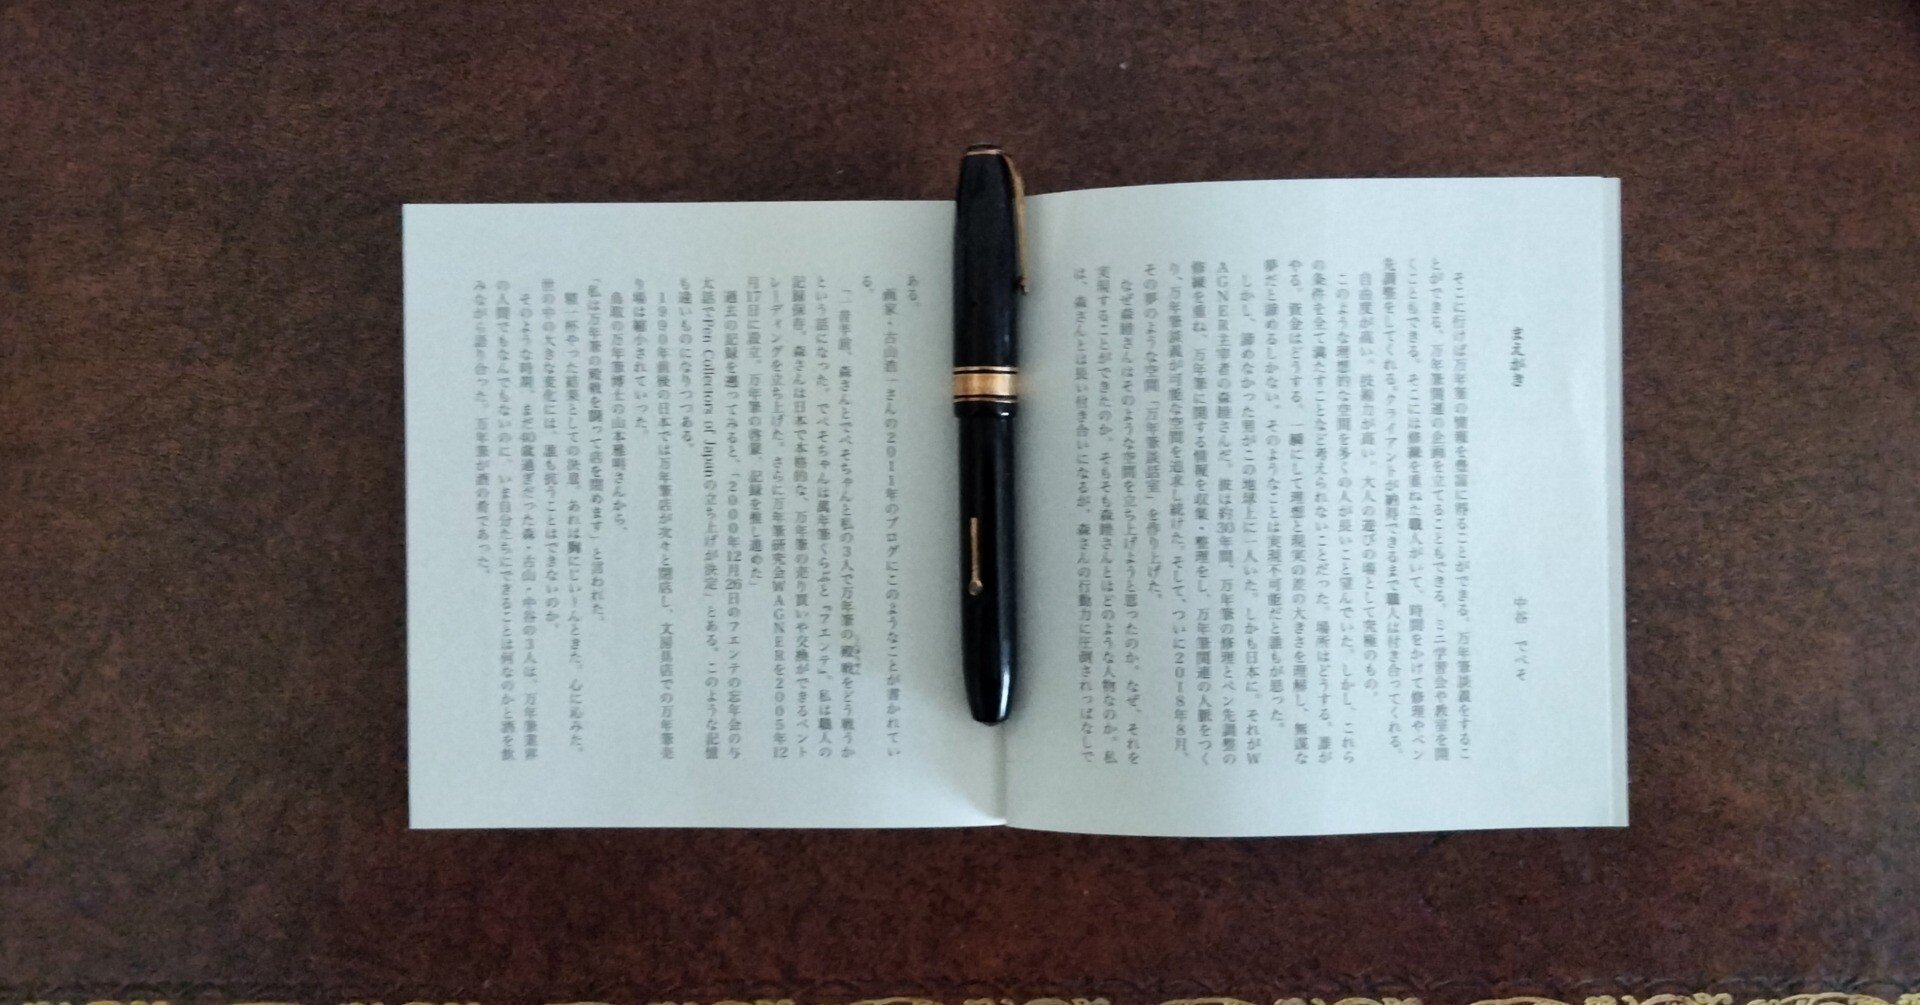 まえがき
中谷 でべそ
そこに行けば万年筆の情報を豊富に得ることができる。万年筆談義をするこ
とができる。万年筆関連の企画を立てることもできる。ミニ学習会や教室を開
くこともできる。そこには修練を重ねた職人がいて、時間をかけて修理やペン
先調整をしてくれる。クライアントが納得できるまで職人は付き合ってくれる。
自由度が高い。技術力が高い。大人の遊びの場として究極のもの。
このような理想的な空間を多くの人が良いこと望んでいた。しかし、これら
の条件を全て満たすことなど考えられないことだった。場所はどうする。誰が
やる。資金はどうする。一瞬にして理想と現実の差の大きさを理解し、無謀な
夢だと諦めるしかない。そのようなことは実現不可能だと誰もが思った。
しかし、諦めなかった男がこの地球上に一人いた。しかも日本に。それがW
AGNER主宰者の森睦さんだ。彼は約30年間、万年筆の修理とペン先調整の
修練を重ね、万年筆に関する情報を収集・整理をし、万年筆関連の人脈をつく
り、万年筆談義が可能な空間を追求し続けた。そして、ついに2018年8月、
その夢のような空間「万年筆談話室」を作り上げた。
なぜ森睦さんはそのような空間を立ち上げようと思ったのか。なぜ、それを
実現することができたのか。そもそも森睦さんとはどのような人物なのか。私
は、森さんとは長い付き合いになるが、森さんの行動力に圧倒されっぱなしで
ある。
画家・古山浩一さんの2011年のブログにこのようなことが書かれてい
る。
「二昔半前、森さんとでべそちゃんと私の3人で万年筆の殿戦をどう戦うか
という話になった。でべそちゃんは萬年筆くらぶと『フエンテ』。私は職人の
記録保存。森さんは日本で本格的な、万年筆の売り買いや交換ができるペント
レーディングを立ち上げた。さらに万年筆研究会WAGNERを2005年12
月17日に設立。万年筆の啓蒙、記録を推し進めた」
過去の記録を遡ってみると、「2000年12月26日のフエンテの忘年会の与
太話でPen Collectors of Japanの立ち上げが決定」とある。このような記憶
も遠いものになりつつある。
1990年前後の日本では万年筆店が次々と閉店し、文房具店での万年筆売
り場は縮小されていった。
鳥取の万年筆博士の山本雅明さんから、
「私は万年筆の殿戦を闘って店を閉めます」と言われた。
精一杯やった結果としての決意。あれは胸にじいーんときた。心に沁みた。
世の中の大きな変化には、誰も抗うことはできないのか。
そのような時期、まだ40歳過ぎだった森・古山・中谷の3人は、万年筆業界
の人間でもなんでもないのに、いま自分たちにできることは何なのかと酒を飲
みながら語り合った。万年筆が酒の肴であった。